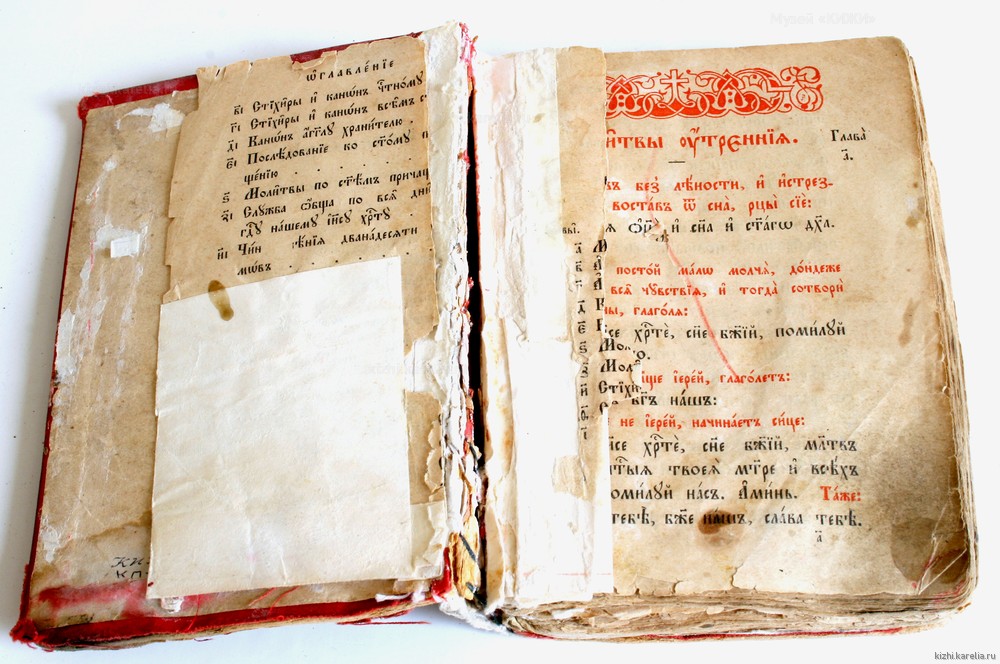 Ѡ҆главле́нїе
в҃і Стїхи̑ры и҆ канѡ́нъ
г҃і Стїхи̑ры и҆ канѡ́нъ всѣ̑мъ
д҃і Канѡ́нъ а҆́гг҃лу храни́телю .
є҃і Послѣ́дованїе ко ст҃о́му
ще́нїю . . .
ѕ҃і Моли̑твы по ст҃ѣ́мъ
з҃і Слу́жба ѻ҆́бща по всѧ̑
гдⷭ҇у на́шему і҆и҃су хрⷭ҇ту̀ .
и҃і Чи́н ѣ́нїѧ дванадесѧти
мѡ́въ . . . . . .
итвы ᲂу҆́трєннїѧ.
Глава̀
а҃.
без̾ лѣ́ности, и҆ и҆стрез-
воста́въ ѿ сна̀, рцы̀ сїѐ:
и҆ сн҃а и҆ ст҃а́гѡ дх҃а.
посто́й ма́лѡ молча̀, до́ндеже
всѧ̑ чꙋ̑вствїѧ, и҆ тогда̀ сотворѝ
глаго́лѧ:
хрⷭ҇тѐ, сн҃е бж҃їй, поми́лꙋй
і҆ере́й, глаго́летъ:
бг҃ъ на́шъ:
не і҆ере́й, начина́етъ си́це:
хрⷭ҇тѐ, сн҃е бж҃їй, мл҃твъ
твоеѧ̀ мт҃ре и҆ всѣ́хъ
поми́лꙋй на́съ. А҆ми́нь. Та́же:
тебѣ̀, бж҃е на́шъ, сла́ва тебѣ̀.
а҃
kizhi.karelia.ru